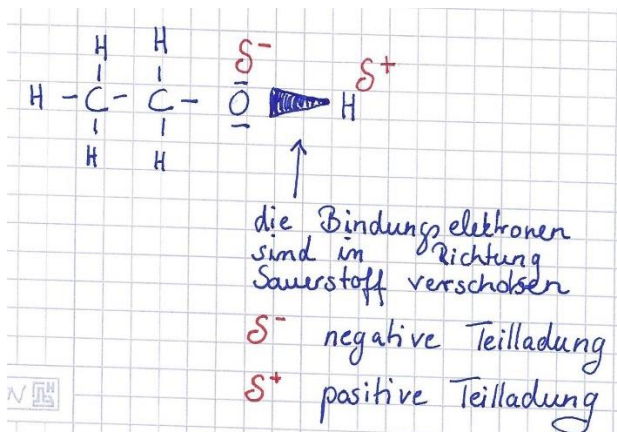 H H δ⁻ δ⁺
H - C - C - O H
H H
die Bindungselektronen
sind in Richtung
Sauerstoff verschoben
δ⁻ negative Teilladung
δ⁺ positive Teilladung